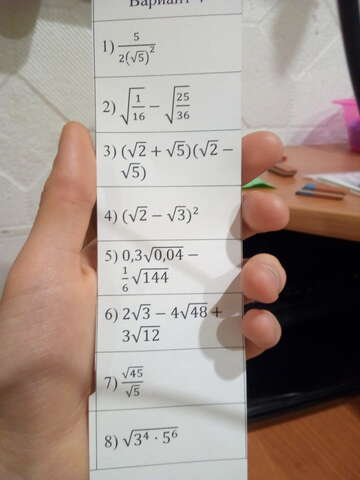 Вариант
1) 5/(2(√5)²)
2) √(1/16) − √(25/36)
3) (√2 + √5)(√2 −
√5)
4) (√2 − √3)²
5) 0,3√0,04 −
1/6 √144
6) 2√3 − 4√48 +
3√12
7) √45/√5
8) √(3⁴ · 5⁶)